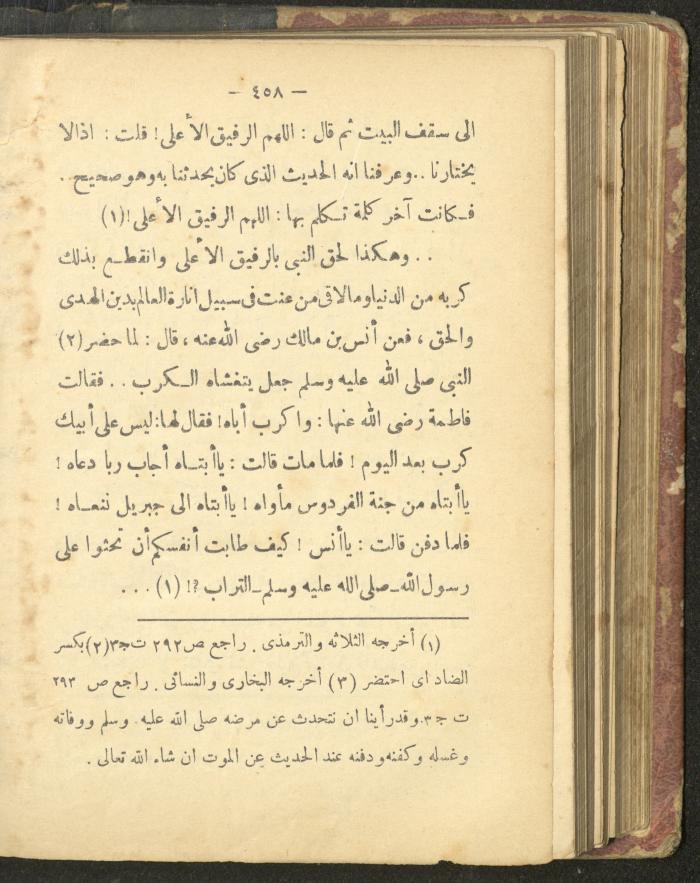 — ٤٥٨ —
الى سقف البيت ثم قال : اللهم الرفيق الأعلى! قلت : اذالا
يختارنا ..وعرفنا انه الحديث الذى كان يحدثنا به وهو صحيح ..
فكانت آخر كلمة تكلم بها : اللهم الرفيق الأعلى!(١)
.. وهكذا لحق النبى بالرفيق الأعلى وانقطع بذلك
كربه من الدنيا ومالاقى من عنت فى سبيل انارة العالم بدين الهدى
والحق ، فعن أنس بن مالك رضى الله عنه ، قال : لما حضر (٢)
النبى صلى الله عليه وسلم جعل يتغشاه الكرب .. فقالت
فاطمة رضى الله عنها : واكرب أباه! فقال لها: ليس على أبيك
كرب بعد اليوم ! فلما مات قالت : ياأبتاه أجاب ربا دعاه !
ياأبتاه من جنة الفردوس مأواه ! ياأبتاه الى جبريل ننعاه !
فلما دفن قالت : ياأنس ! كيف طابت أنفسكم أن تحثوا على
رسول الله ـ صلى الله عليه وسلم ـ التراب ؟! (١) ...
(١) أخرجه الثلاثه والترمذى . راجع ص ٢٩٢ ت ج٣ (٢) بكسر
الضاد اى احتضر (٣) أخرجه البخارى والنسائى . راجع ص ٢٩٣
ت ج ٣. وقد رأينا ان نتحدث عن مرضه صلى الله عليه وسلم ووفاته
وغسله وكفنه ودفنه عند الحديث عن الموت ان شاء الله تعالى .